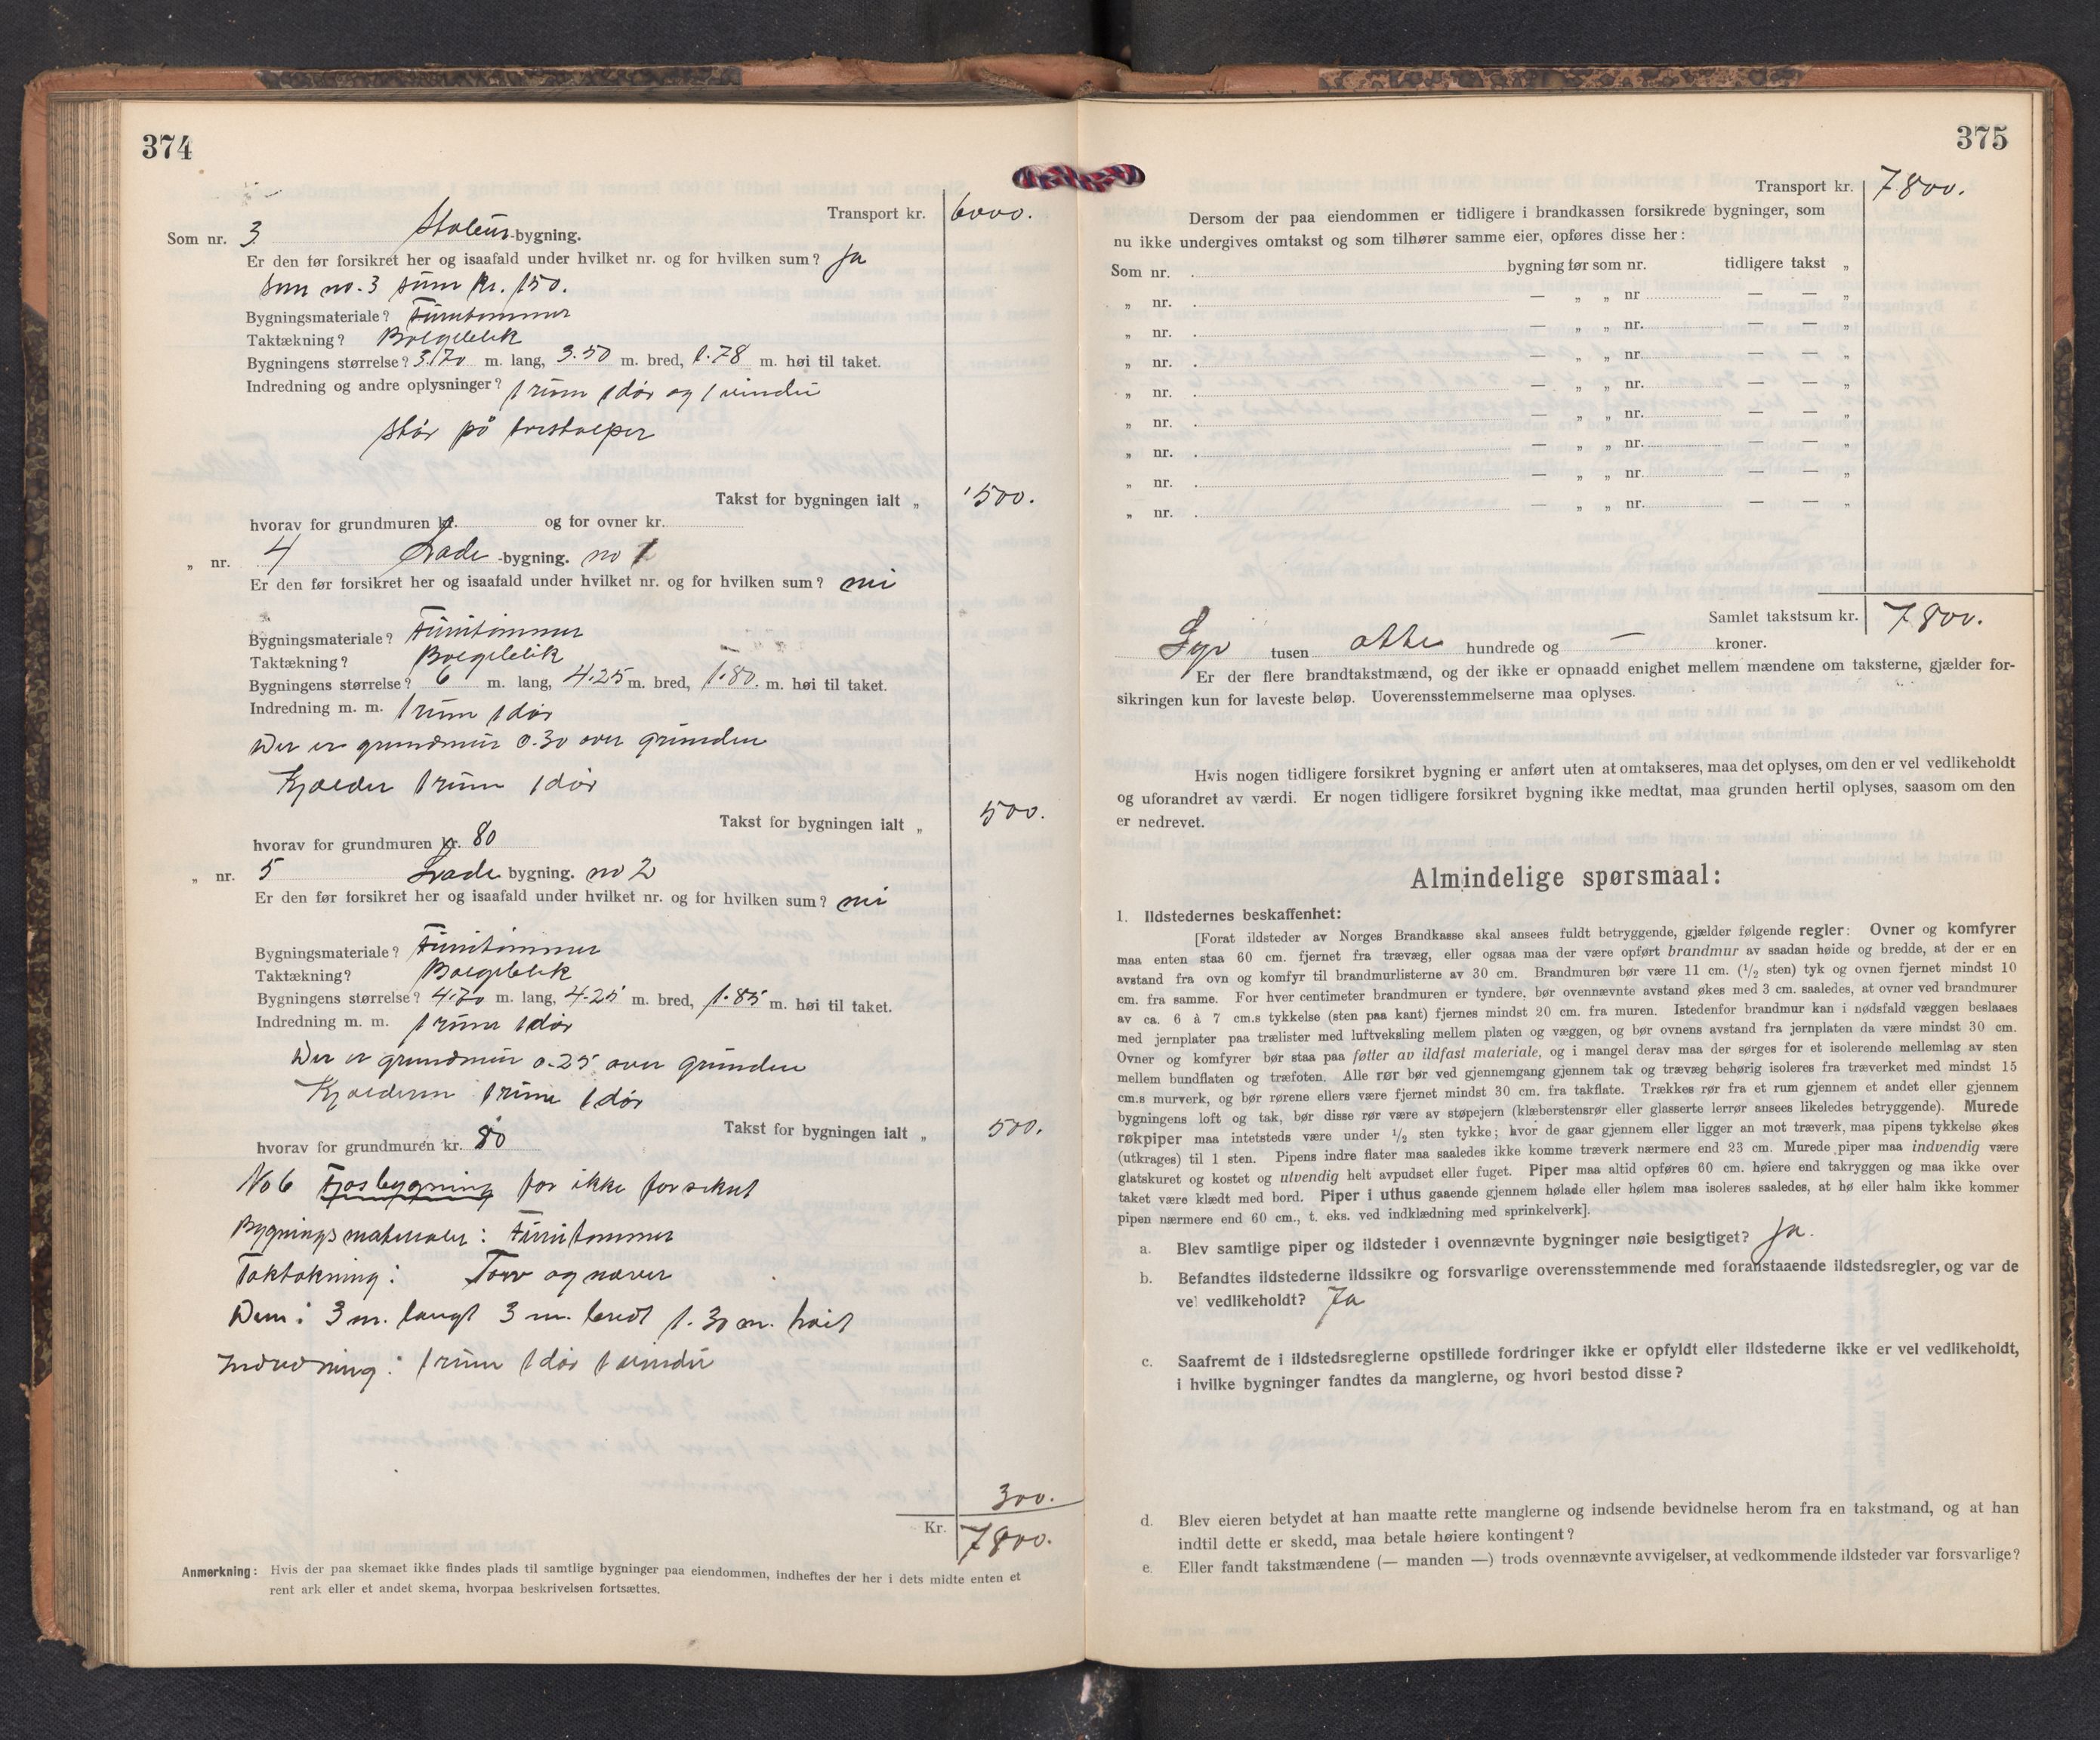 374
Transport kr. 6000.
Som nr. 3 Staburs-bygning.
Er den før forsikret her og isaafald under hvilket nr. og for hvilken sum? Ja
Som no. 3 sum kr. 150.
Bygningsmateriale? Furutømmer
Taktækning? Bølgeblik
Bygningens størrelse? 3.70 m. lang, 3.50 m. bred, 1.78 m. høi til taket.
Indredning og andre oplysninger? 1 rum 1 dør og 1 vindu
Står på
Takst for bygningen ialt „ 500.
hvorav for grundmuren kr. og for ovner kr.
„ nr. 4 Lade -bygning. no 1
Er den før forsikret her og isaafald under hvilket nr. og for hvilken sum? nei
Bygningsmateriale? Furutømmer
Taktækning? Bølgeblik
Bygningens størrelse? 6 m. lang, 4.25 m. bred, 1.80. m. høi til taket.
Indredning m. m. 1 rum 1 dør
Der er grundmur 0.30 over grunden
Kjælder 1 rum 1 dør
Takst for bygningen ialt „ 500.
hvorav for grundmuren kr. 80
„ nr. 5 Lade bygning. no 2
Er den før forsikret her og isaafald under hvilket nr. og for hvilken sum? nei
Bygningsmateriale? Furutømmer
Taktækning? Bølgeblik
Bygningens størrelse? 4.70 m. lang, 4.25 m. bred, 1.85 m. høi til taket.
Indredning m. m. 1 rum 1 dør
Der er grundmur 0.25 over grunden
Kjælderen 1 rum 1 dør
Takst for bygningen ialt „ 500.
hvorav for grundmuren kr. 80
No 6 Fjøsbygning før ikke forsikret
Bygningsmateriale: Furutømmer
Taktækning: Torv og næver
Dim: 3 m. langt 3 m. bredt 1.30 m. høit
Indredning: 1 rum 1 dør 1 vindu
300.
Kr. 7800.
Anmerkning: Hvis der paa skemaet ikke findes plads til samtlige bygninger paa eiendommen, indheftes der her i dets midte enten et
rent ark eller et andet skema, hvorpaa beskrivelsen fortsættes.
375
Transport kr. 7800.
Dersom der paa eiendommen er tidligere i brandkassen forsikrede bygninger, som
nu ikke undergives omtakst og som tilhører samme eier, opføres disse her:
Som nr. bygning før som nr. tidligere takst „
„ nr. — „ „ nr — — „
„ nr. — „ „ nr. — — „
„ nr. — „ „ nr. — — „
„ nr. — „ „ nr. — — „
„ nr. — „ „ nr. — — „
„ nr. — „ „ nr. — — „
„ nr. — „ „ nr. — — „
„ nr. — „ „ nr. — — „
Samlet takstsum kr. 7800.
Syv tusen otte hundrede og — kroner.
Er der flere brandtakstmænd, og der ikke er opnaadd enighet mellem mændene om taksterne, gjælder for-
sikringen kun for laveste beløp. Uoverensstemmelserne maa oplyses.
Hvis nogen tidligere forsikret bygning er anført uten at omtakseres, maa det oplyses, om den er vel vedlikeholdt
og uforandret av værdi. Er nogen tidligere forsikret bygning ikke medtat, maa grunden hertil oplyses, saasom om den
er nedrevet.
Almindelige spørsmaal:
1. Ildstedernes beskaffenhet:
[Forat ildsteder av Norges Brandkasse skal ansees fuldt betryggende, gjælder følgende regler: Ovner og komfyrer
maa enten staa 60 cm. fjernet fra trævæg, eller ogsaa maa der være opført brandmur av saadan høide og bredde, at der er en
avstand fra ovn og komfyr til brandmurlisterne av 30 cm. Brandmuren bør være 11 cm. (1/2 sten) tyk og ovnen fjernet mindst 10
cm. fra samme. For hver centimeter brandmuren er tyndere, bør ovennævnte avstand økes med 3 cm. saaledes, at ovner ved brandmurer
av ca. 6 à 7 cm.s tykkelse (sten paa kant) fjernes mindst 20 cm. fra muren. Istedenfor brandmur kan i nødsfald væggen beslaaes
med jernplater paa trælister med luftveksling mellem platen og væggen, og bør ovnens avstand fra jernplaten da være mindst 30 cm.
Ovner og komfyrer bør staa paa føtter av ildfast materiale, og i mangel derav maa der sørges for et isolerende mellemlag av sten
mellem bundflaten og træfoten. Alle rør bør ved gjennemgang gjennem tak og trævæg behørig isoleres fra træverket med mindst 15
cm.s murverk, og bør rørene ellers være fjernet mindst 30 cm. fra takflate. Trækkes rør fra et rum gjennem et andet eller gjennem
bygningens loft og tak, bør disse rør være av støpejern (klæberstensrør eller glasserte lerrør ansees likeledes betryggende). Murede
røkpiper maa intetsteds være under 1/2 sten tykke; hvor de gaar gjennem eller ligger an mot træverk, maa pipens tykkelse økes
(utkrages) til 1 sten. Pipens indre flater maa saaledes ikke komme træverk nærmere end 23 cm. Murede piper maa indvendig være
glatskuret og kostet og utvendig helt avpudset eller fuget. Piper maa altid opføres 60 cm. høiere end takryggen og maa ikke over
taket være klædt med bord. Piper i uthus gaaende gjennem hølade eller hølem maa isoleres saaledes, at hø eller halm ikke kommer
pipen nærmere end 60 cm., t. eks. ved indklædning med sprinkelverk].
a. Blev samtlige piper og ildsteder i ovennævnte bygninger nøie besigtiget? Ja.
b. Befandtes ildstederne ildssikre og forsvarlige overensstemmende med foranstaaende ildstedsregler, og var de
vel vedlikeholdt? Ja
c. Saafremt de i ildstedsreglerne opstillede fordringer ikke er opfyldt eller ildstederne ikke er vel vedlikeholdt,
i hvilke bygninger fandtes da manglerne, og hvori bestod disse?
d. Blev eieren betydet at han maatte rette manglerne og indsende bevidnelse herom fra en takstmand, og at han
indtil dette er skedd, maa betale høiere kontingent?
e. Eller fandt takstmændene (— manden —) trods ovennævnte avvigelser, at vedkommende ildsteder var forsvarlige?